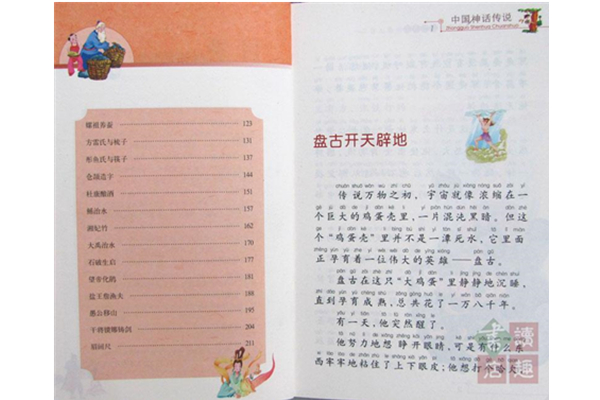 嫘祖养蚕 123
方雷氏与梳子 131
彤鱼氏与筷子 137
仓颉造字 144
杜康酿酒 151
鲧治水 157
湘妃竹 162
大禹治水 170
石破生启 177
望帝化鹃 181
盐王詹渔夫 188
愚公移山 195
干将镆铘铸剑 204
眉间尺 211
中国神话传说
Zhongguo Shenhua Chuanshuo
盘古开天辟地
传说万物之初，宇宙就像浓缩在一
个巨大的鸡蛋壳里，一片混沌黑暗。但这
个“鸡蛋壳”里并不是一潭死水，它里面
正孕育着一位伟大的英雄——盘古。
盘古在这只“大鸡蛋”里静静地沉睡，
直到孕育成熟，总共花了一万八千年。
有一天，他突然醒了。
他努力地想睁开眼睛，可是有什么东
西牢牢地粘住了上下眼皮；他想打个哈欠
讀趣書店